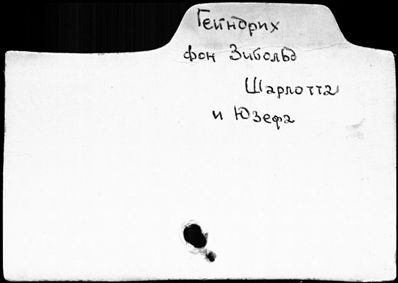 Гейнорих
фон Зибольд
Шарлотта
и Юзефа